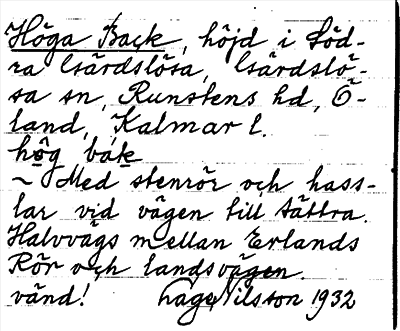 Höga Back, höjd i Söd-
ra Gärdslösa, Gärdslö-
sa sn, Runstens hd, Ö-
land, Kalmar l.
hög bák
~ Med stenrör och hass-
lar vid vägen till Sättra.
Halvvägs mellan Erlands
Rör och landsvägen.
vänd! Lage Nilsson 1932